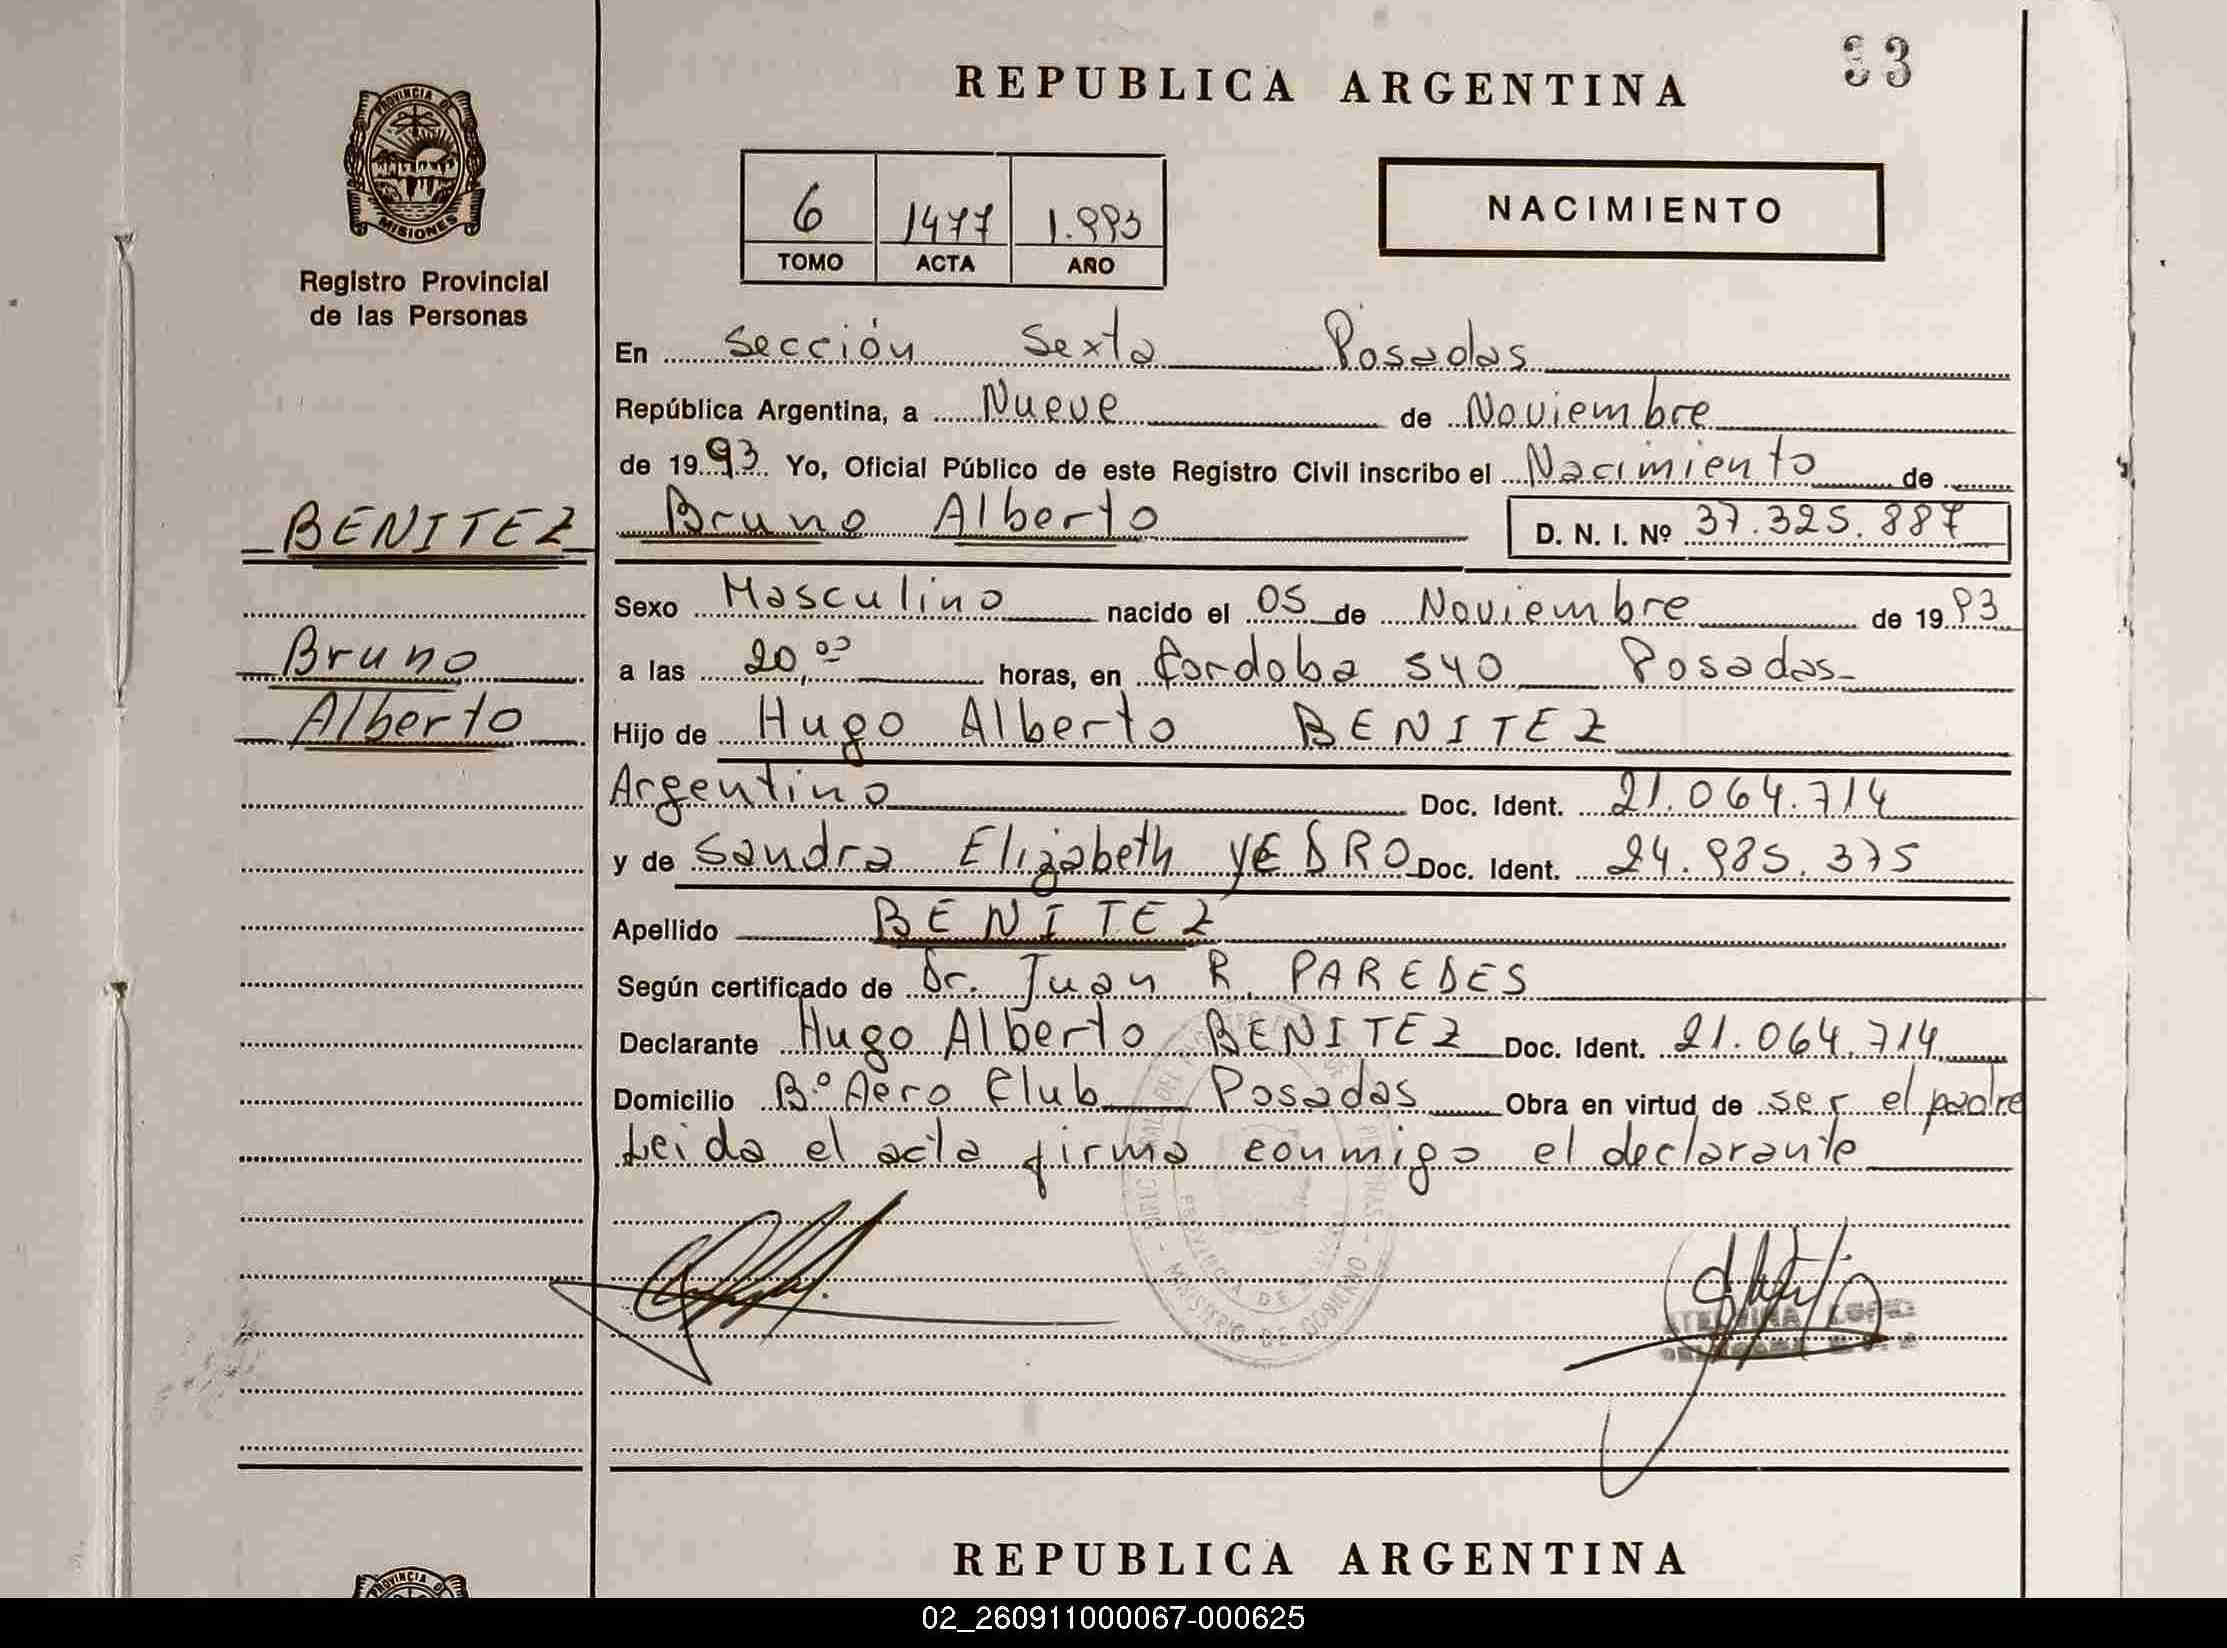 33
REPUBLICA ARGENTINA
PROVINCIA DE
MISIONES
Registro Provincial
de las Personas
6 1477 1.993
TOMO ACTA AÑO
NACIMIENTO
En Sección Sexta Posadas
República Argentina, a Nueve de Noviembre
de 1993 Yo, Oficial Público de este Registro Civil inscribo el Nacimiento de
BENITEZ
Bruno Alberto D. N. I. Nº 37.325.887
Sexo Masculino nacido el 05 de Noviembre de 1993
Bruno
a las 20,00 horas, en Cordoba 540 Posadas
Alberto
Hijo de Hugo Alberto BENITEZ
Argentino Doc. Ident. 21.064.714
y de Sandra Elizabeth YEDRO Doc. Ident. 24.985.375
Apellido BENITEZ
Según certificado de Dr. Juan R. PAREDES
Declarante Hugo Alberto BENITEZ Doc. Ident. 21.064.714
Domicilio Bº Aero Club Posadas Obra en virtud de ser el padre
Leida el acta firma conmigo el declarante
MINISTERIO DE GOBIERNO
LOPEZ
REPUBLICA ARGENTINA
PROVINCIA D
02_260911000067-000625